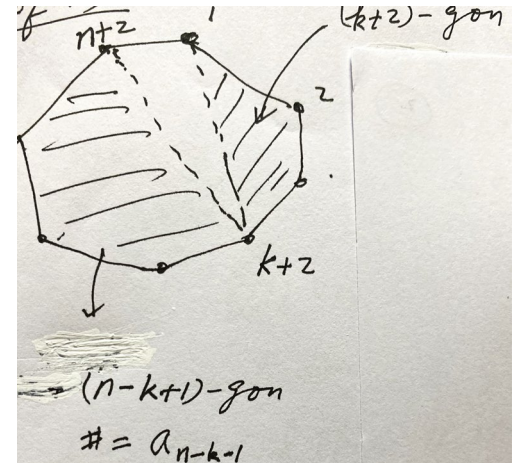 of
n+2
1
(k+2)-gon
2
k+2
(n-k+1)-gon
# = a_{n-k-1}